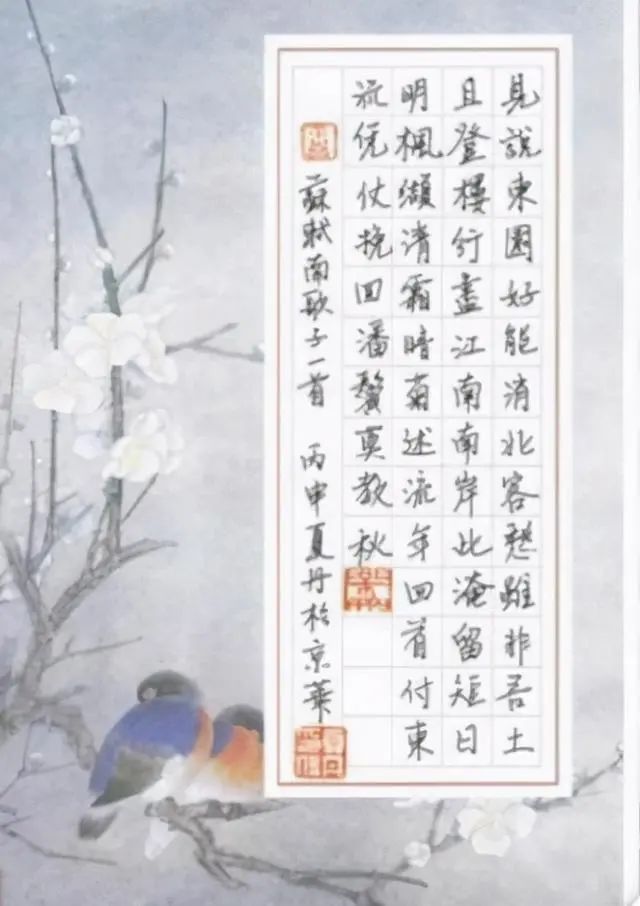 見說東園好能消北客愁雖非吾土
且登樓行盡江南南岸此淹留短日
明楓纈清霜暗菊述流年回首付東
流凭仗挽回潘鬢莫教秋
蘇軾南歌子一首 丙申夏丹於京華